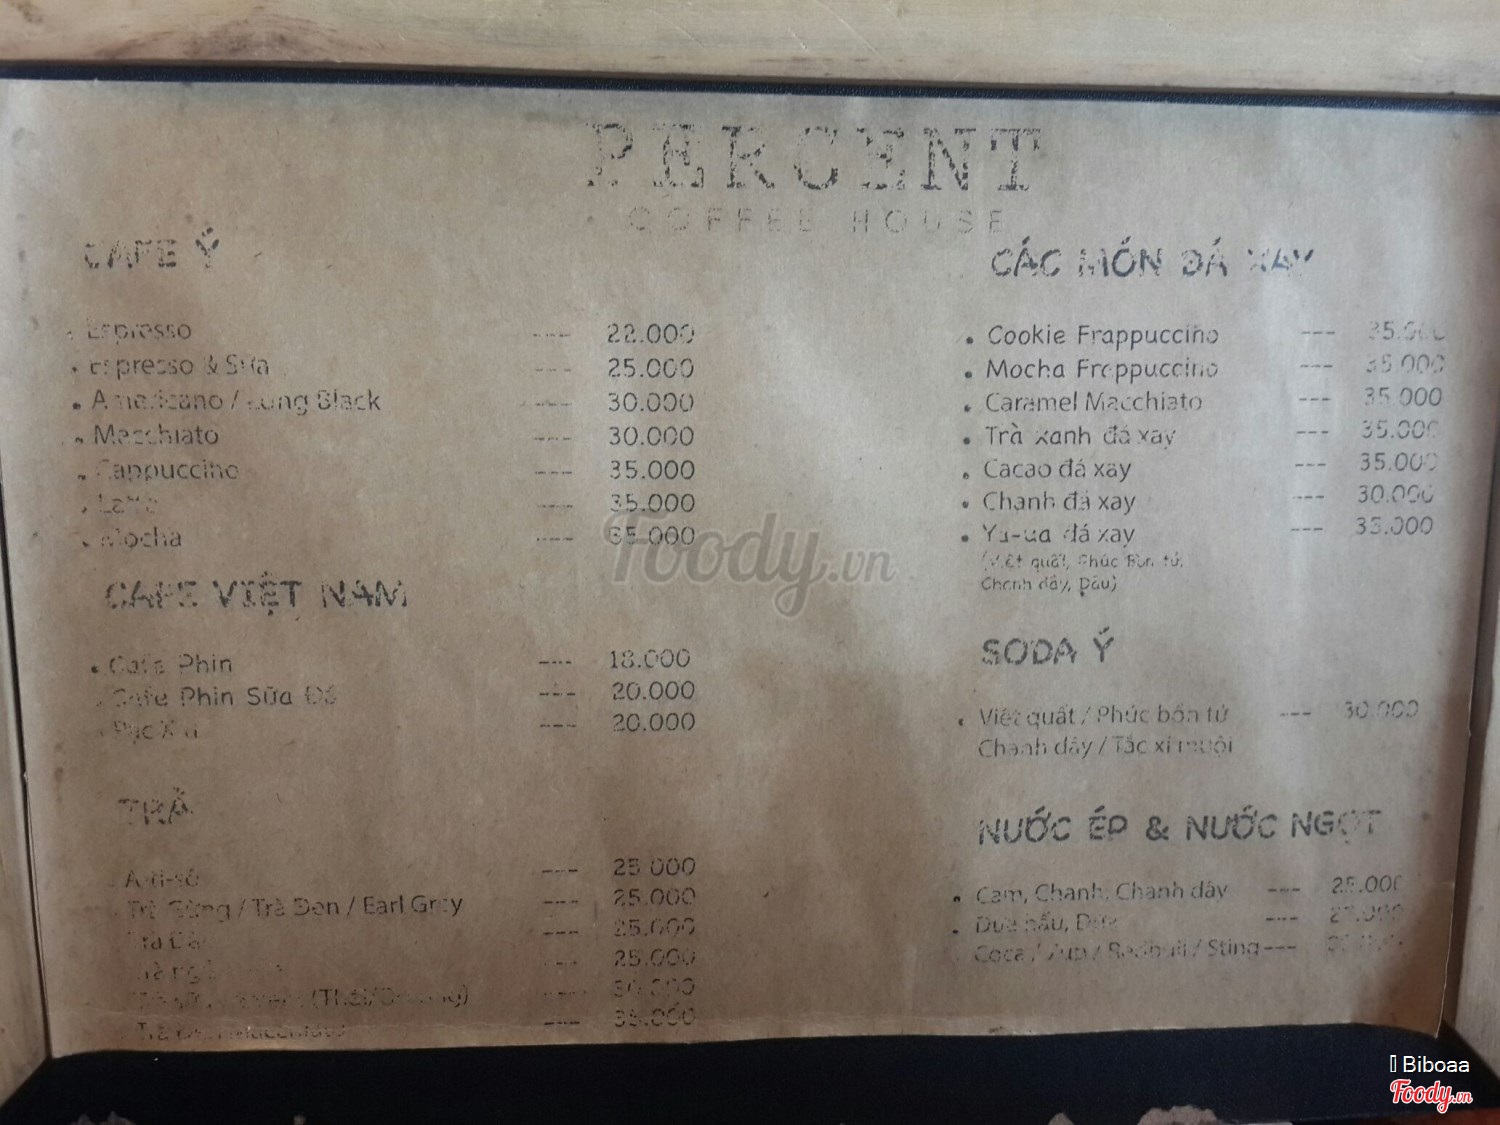 PERCENT
COFFEE HOUSE
CAFE Ý
Espresso --- 22.000
Espresso & Sữa --- 25.000
Americano / Long Black --- 30.000
Macchiato --- 30.000
Cappuccino --- 35.000
Latte --- 35.000
Mocha --- 35.000
CAFE VIỆT NAM
Cafe Phin --- 18.000
Cafe Phin Sữa Đá --- 20.000
Bạc Xỉu --- 20.000
TRÀ
--- 25.000
Trà Gừng / Trà Đen / Earl Grey --- 25.000
Trà --- 25.000
--- 25.000
--- 30.000
Macchiato --- 35.000
CÁC MÓN ĐÁ XAY
Cookie Frappuccino --- 35.000
Mocha Frappuccino --- 35.000
Caramel Macchiato --- 35.000
Trà xanh đá xay --- 35.000
Cacao đá xay --- 35.000
Chanh đá xay --- 30.000
Ya-ua đá xay --- 35.000
(Việt quất, Phúc Bồn tử,
Chanh dây, Dâu)
SODA Ý
Việt quất / Phúc bồn tử --- 30.000
Chanh dây / Tắc xí muội
NƯỚC ÉP & NƯỚC NGỌT
Cam, Chanh, Chanh dây --- 25.000
Dưa hấu, Dứa ---
Coca / 7up / Redbull / Sting ---
Foody.vn
Biboaa
Foody.vn